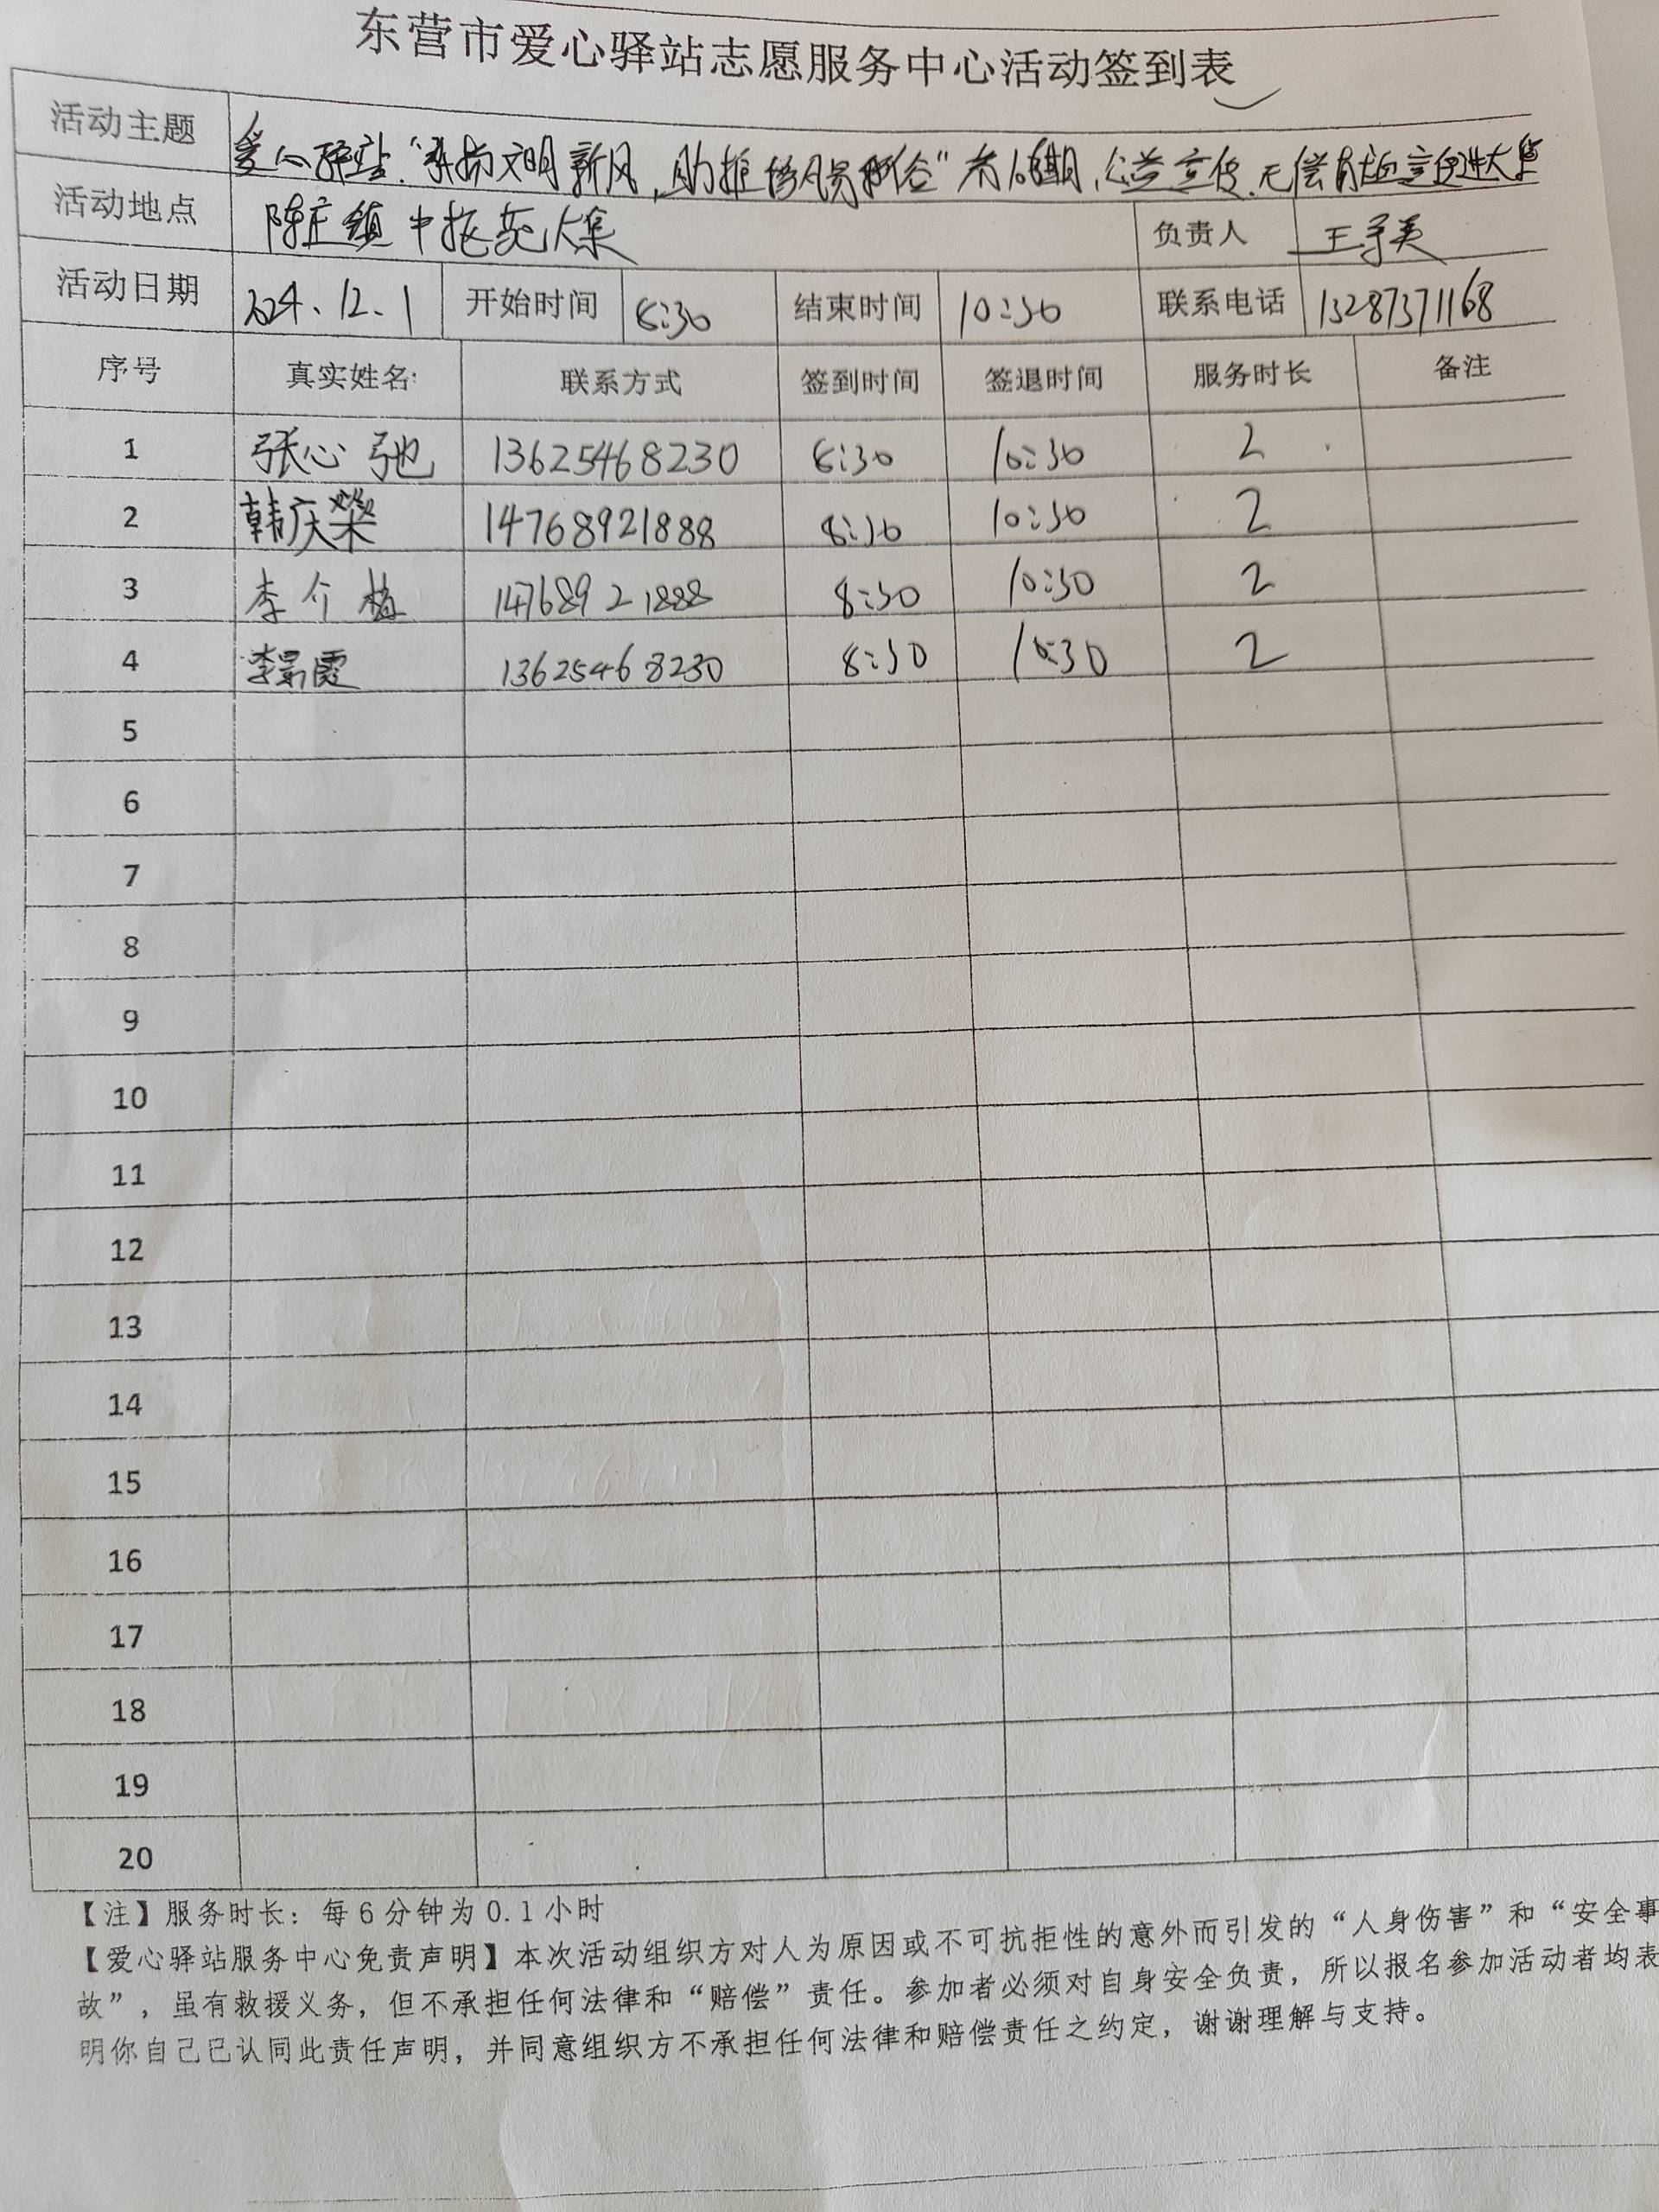 东营市爱心驿站志愿服务中心活动签到表
活动主题 爱心驿站"弘扬文明新风,助推移风易俗" 公益宣传、无偿献血宣传进大集
活动地点 陈庄镇 大集 负责人
活动日期 2024.12.1 开始时间 8:30 结束时间 10:30 联系电话 13287371168
序号 真实姓名: 联系方式 签到时间 签退时间 服务时长 备注
1 张心弛 13625468230 8:30 10:30 2
2 韩庆荣 14768921888 8:30 10:30 2
3 李介梅 14768921888 8:30 10:30 2
4 李景霞 13625468230 8:30 10:30 2
5
6
7
8
9
10
11
12
13
14
15
16
17
18
19
20
【注】服务时长:每6分钟为0.1小时
【爱心驿站服务中心免责声明】本次活动组织方对人为原因或不可抗拒性的意外而引发的“人身伤害”和“安全事
故”,虽有救援义务,但不承担任何法律和“赔偿”责任。参加者必须对自身安全负责,所以报名参加活动者均表
明你自己已认同此责任声明,并同意组织方不承担任何法律和赔偿责任之约定,谢谢理解与支持。